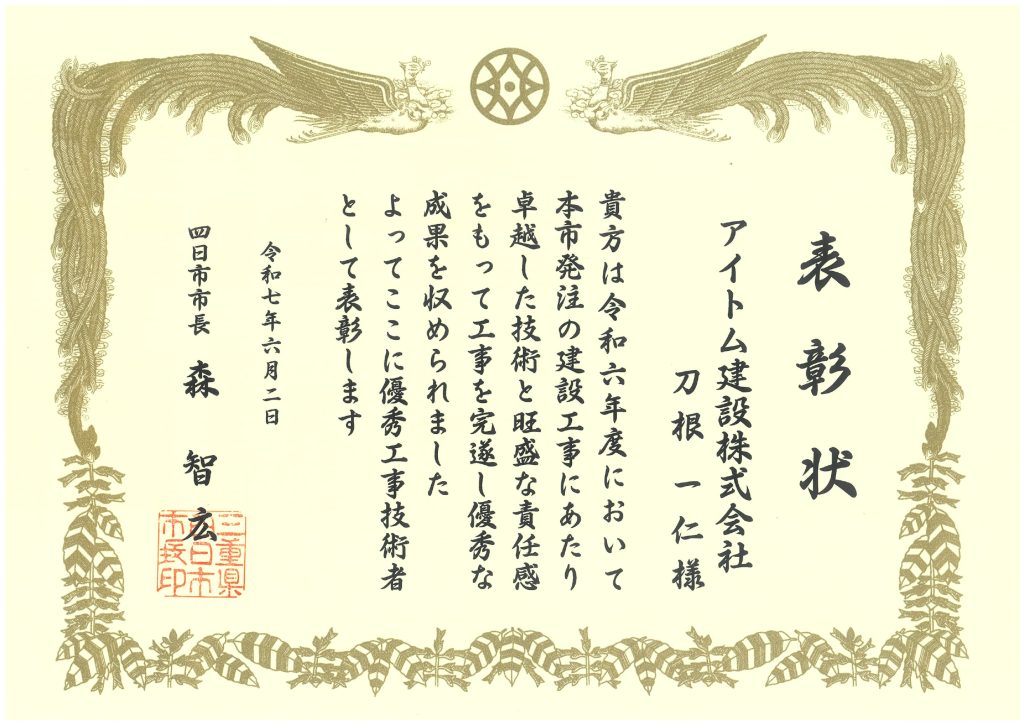 表彰状
アイトム建設株式会社
刀根一仁様
貴方は令和六年度において
本市発注の建設工事にあたり
卓越した技術と旺盛な責任感
をもって工事を完遂し優秀な
成果を収められました
よってここに優秀工事技術者
として表彰します
令和七年六月二日
四日市市長 森 智広
三重県
四日市
市長印